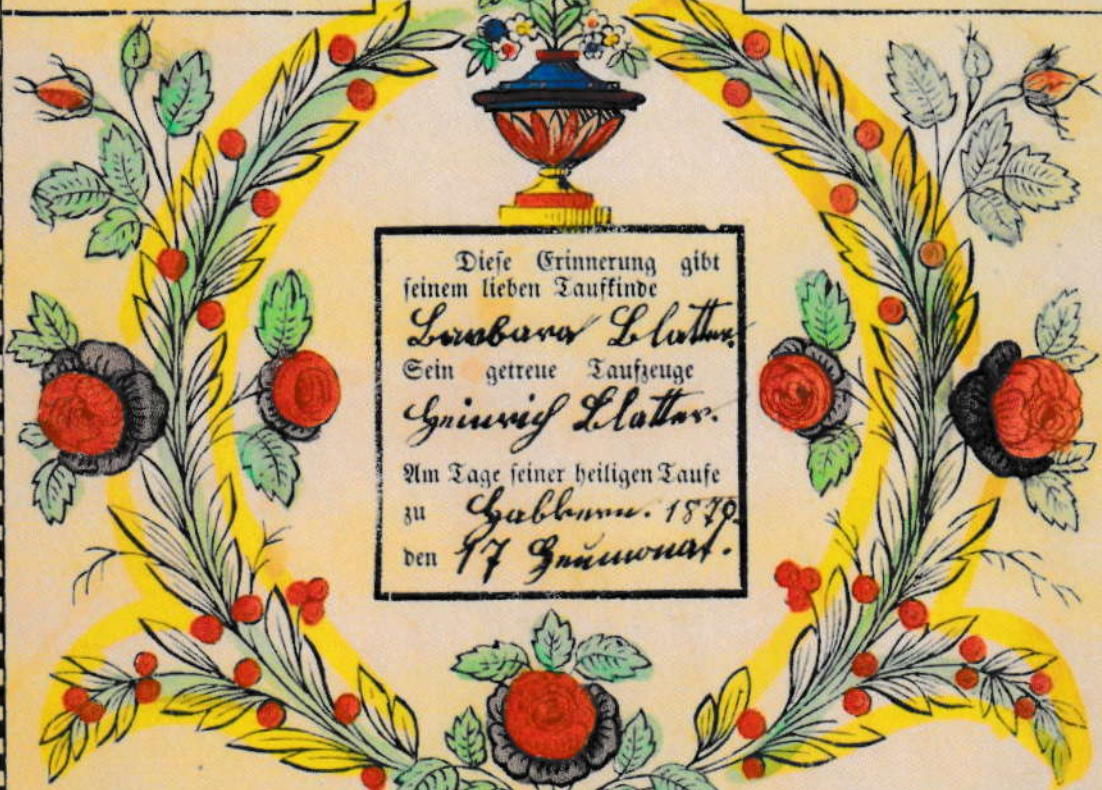 Diese Erinnerung gibt
seinem lieben Taufkinde
Barbara Blatter.
Sein getreue Taufzeuge
Heinrich Blatter.
Am Tage seiner heiligen Taufe
zu Habkern. 1870.
den 17 Heumonat.